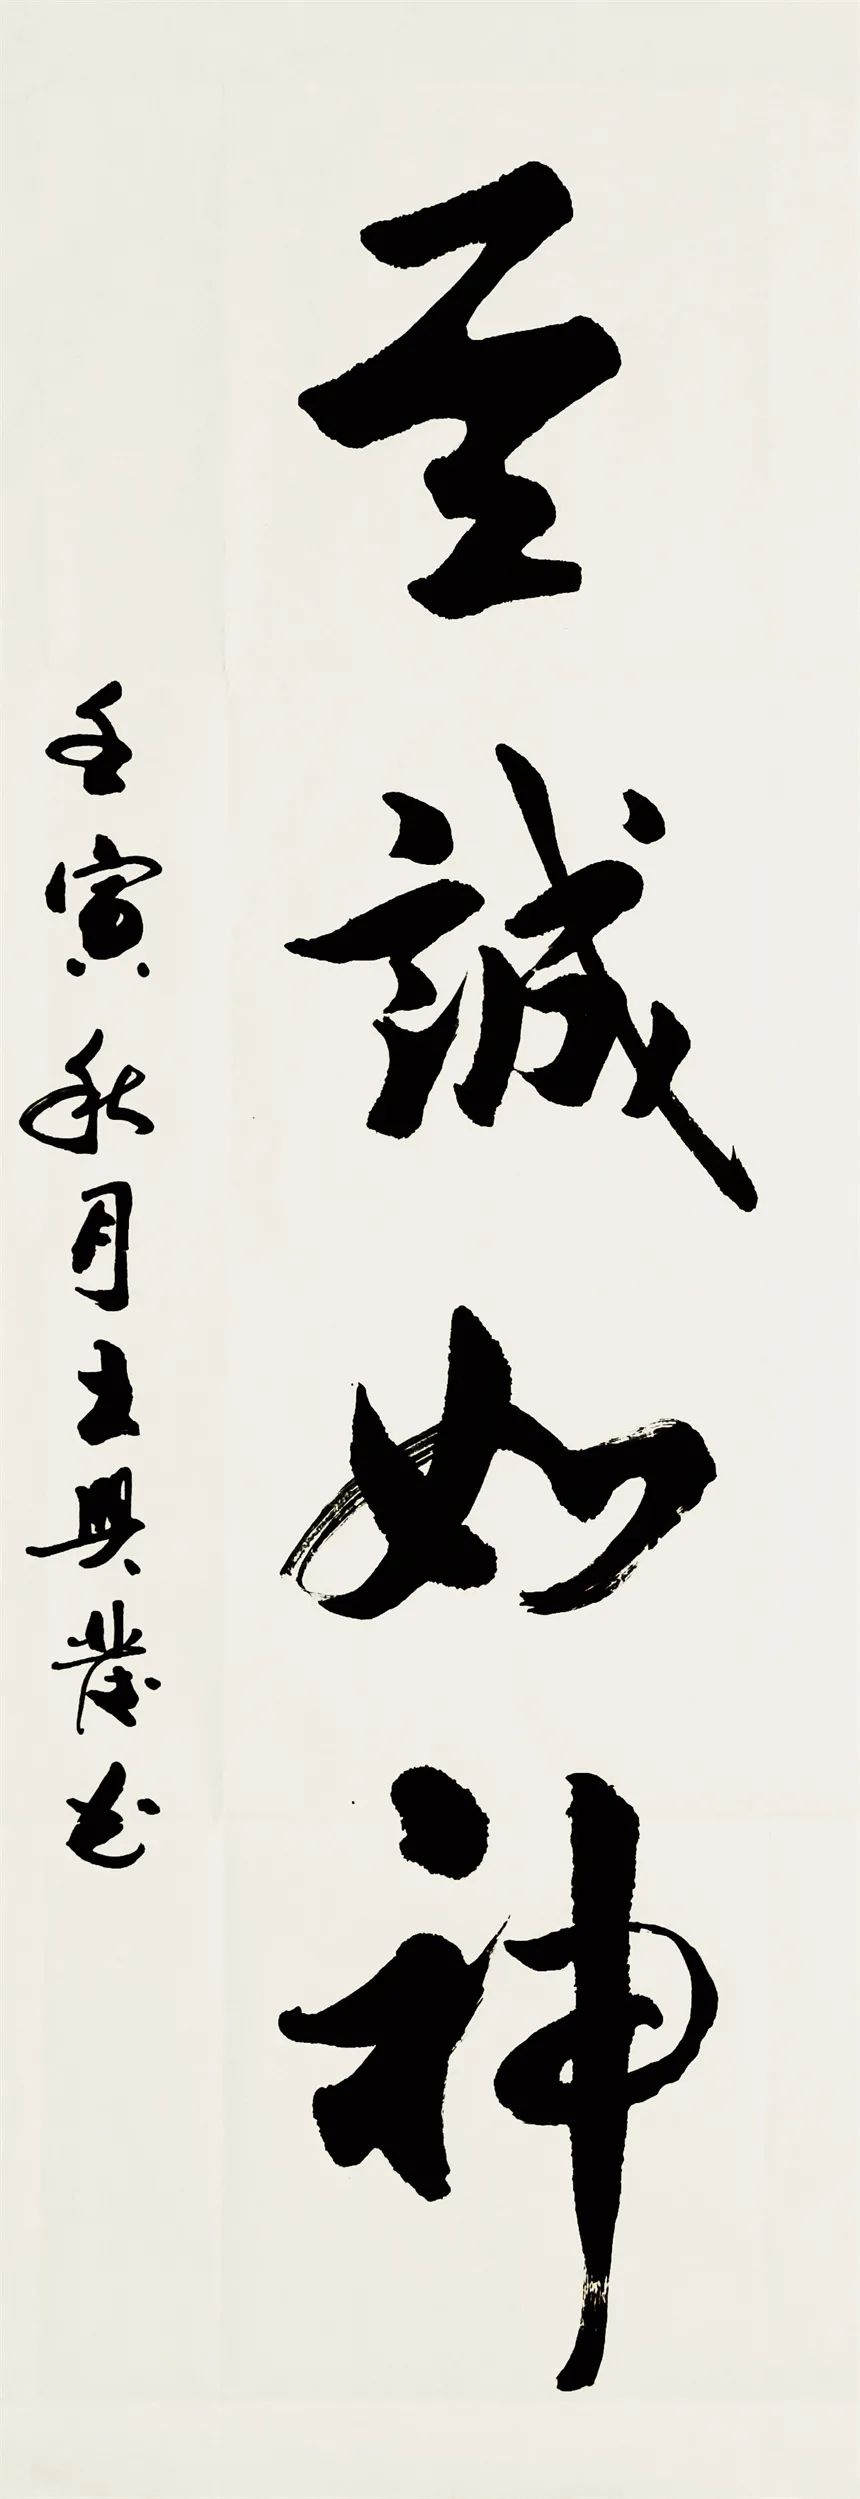 至誠如神
壬寅秋月王興農书